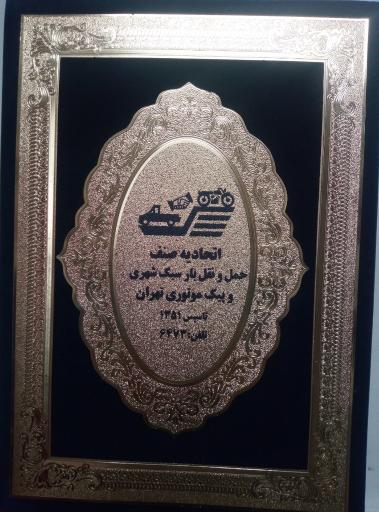 اتحادیه صنف
حمل و نقل بار سبک شهری
و پیک موتوری تهران
تاسیس ۱۳۵۱
تلفن: ۶۴۷۳